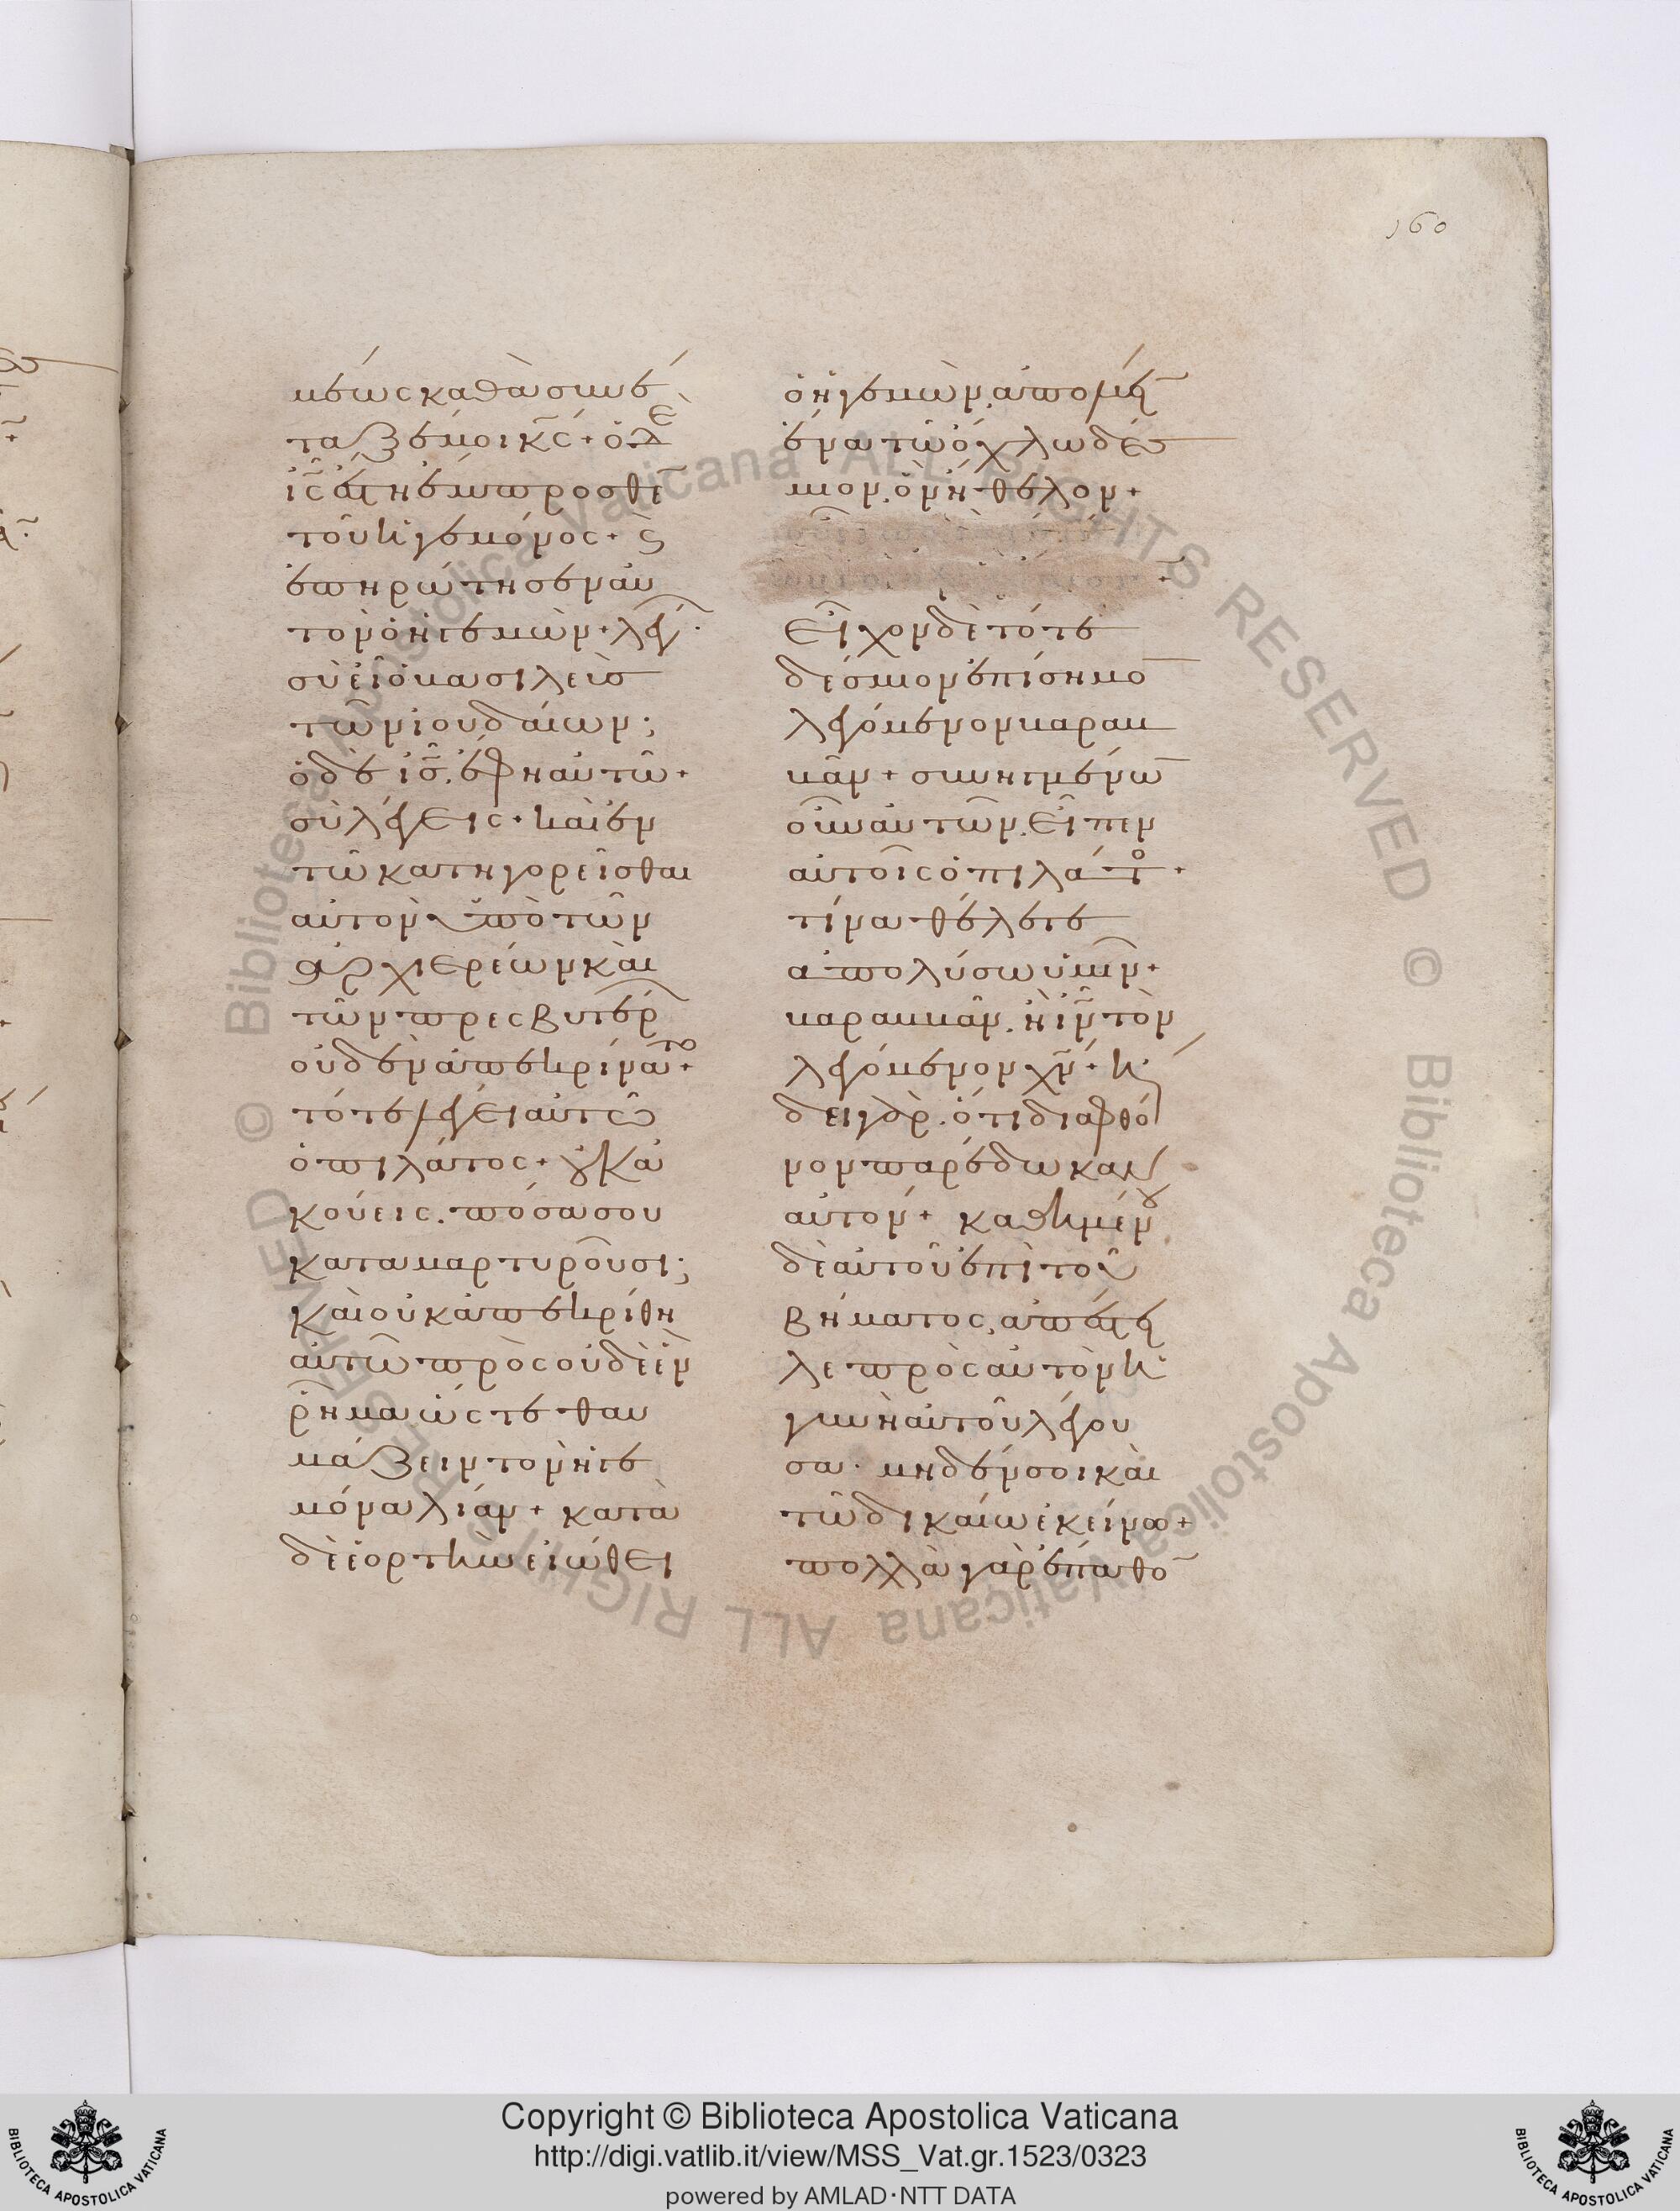 160
μέως καθὰ συνέ
ταξέ μοι κ̅ς̅· ὁ δὲ
ι̅ς̅ ἔστη ἔμπροσθε̅
τοῦ ἡγεμόνος· ϛ
ἐπηρώτησεν αὐ
τὸν ὁ ἡγεμὼν· λέγ
σὺ εἶ ὁ βασιλεὺς
τῶν ἰουδαίων;
ὁ δὲ ι̅ς̅. ἔφη αὐτῶ·
σὺ λέγεις· καὶ ἐν
τῶ κατηγορεῖσθαι
αὐτὸν ὑπὸ τῶν
ἀρχιερέων καὶ
τῶν πρεσβυτέρ
οὐδὲν ἀπεκρίνατο·
τότε λέγει αὐτῶ
ὁ πιλάτος· οὐκ ἀ
κούεις. πόσα σου
καταμαρτυροῦσι;
καὶ οὐκ ἀπεκρίθη
αὐτῶ πρὸς οὐδὲ ἓν
ῥῆμα ὥστε θαυ
μάζειν τὸν ἡγε
μόνα λίαν· κατὰ
δὲ ἑορτὴν εἰώθει
ὁ ἡγεμὼν, ἀπολύει̅
ἕνα τῶ ὄχλω δέσ
μιον. ὃν ἤθελον·
εἶχον δὲ τότε
δέσμιον ἐπίσημο̅
λεγόμενον βαραβ
βᾶν· συνηγμένω̅
οὖν αὐτῶν. εἶπεν
αὐτοῖς ὁ πιλάτο
τίνα θέλετε
ἀπολύσω ὑμῖν·
βαραββᾶν. ἢ ι̅ν̅ τὸν
λεγόμενον χ̅ν̅· ἤ
δει γὰρ. ὅτι διὰ φθό
νον παρέδωκαν
αὐτόν· καθημένου
δὲ αὐτοῦ ἐπὶ τοῦ
βήματος, ἀπέστει
λε πρὸς αὐτὸν ἡ
γυνὴ αὐτοῦ λέγου
σα· μηδέν σοι καὶ
τῶ δικαίω ἐκείνω·
πολλὰ γὰρ ἔπαθο̅
© Biblioteca Apostolica Vaticana ALL RIGHTS RESERVED © Biblioteca Apostolica Vaticana ALL RIGHTS RESERVED
Copyright © Biblioteca Apostolica Vaticana
http://digi.vatlib.it/view/MSS_Vat.gr.1523/0323
powered by AMLAD·NTT DATA
BIBLIOTECA APOSTOLICA VATICANA
BIBLIOTECA APOSTOLICA VATICANA